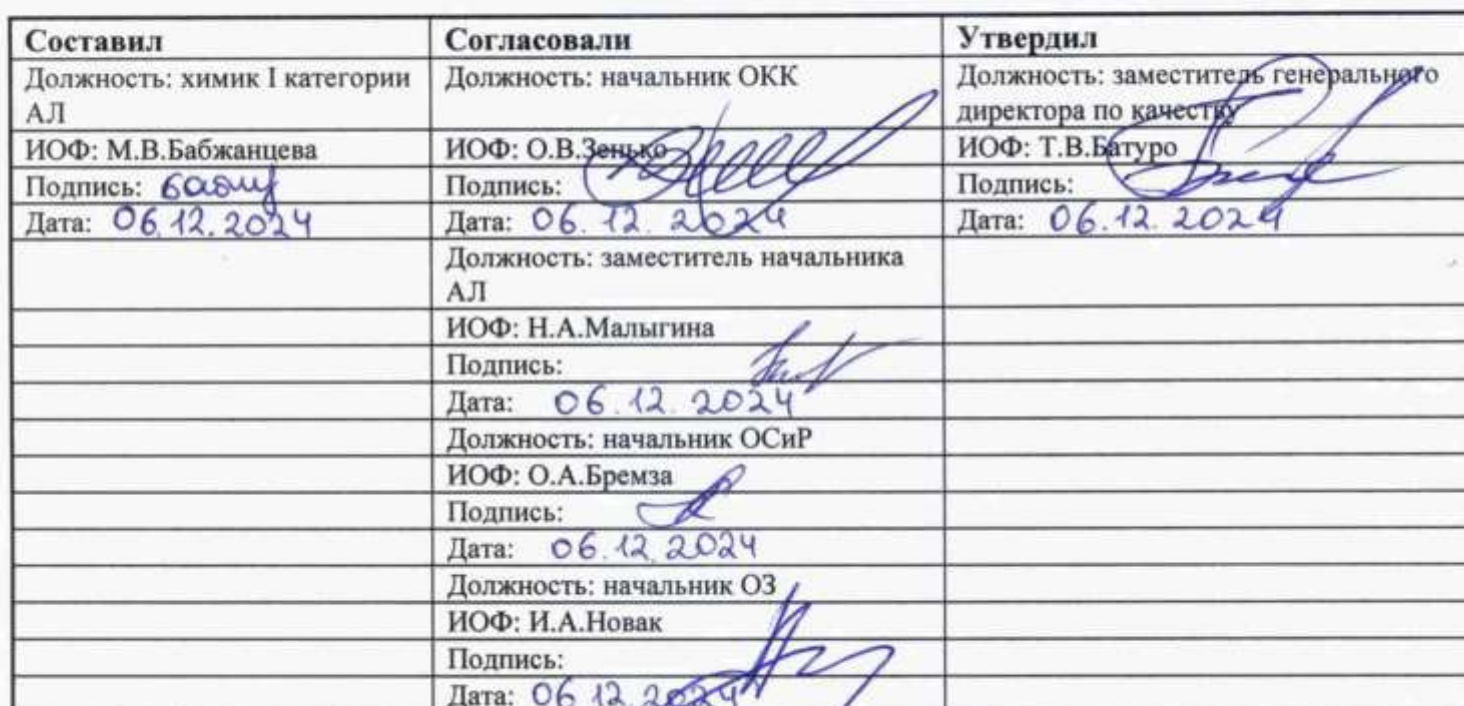 Составил Согласовали Утвердил
Должность: химик I категории Должность: начальник ОКК Должность: заместитель генерального
АЛ директора по качеству
ИОФ: М.В.Бабжанцева ИОФ: О.В.Зенько ИОФ: Т.В.Батуро
Подпись: Подпись: Подпись:
Дата: 06.12.2024 Дата: 06.12.2024 Дата: 06.12.2024
Должность: заместитель начальника
АЛ
ИОФ: Н.А.Малыгина
Подпись:
Дата: 06.12.2024
Должность: начальник ОСиР
ИОФ: О.А.Бремза
Подпись:
Дата: 06.12.2024
Должность: начальник ОЗ
ИОФ: И.А.Новак
Подпись:
Дата: 06.12.2024